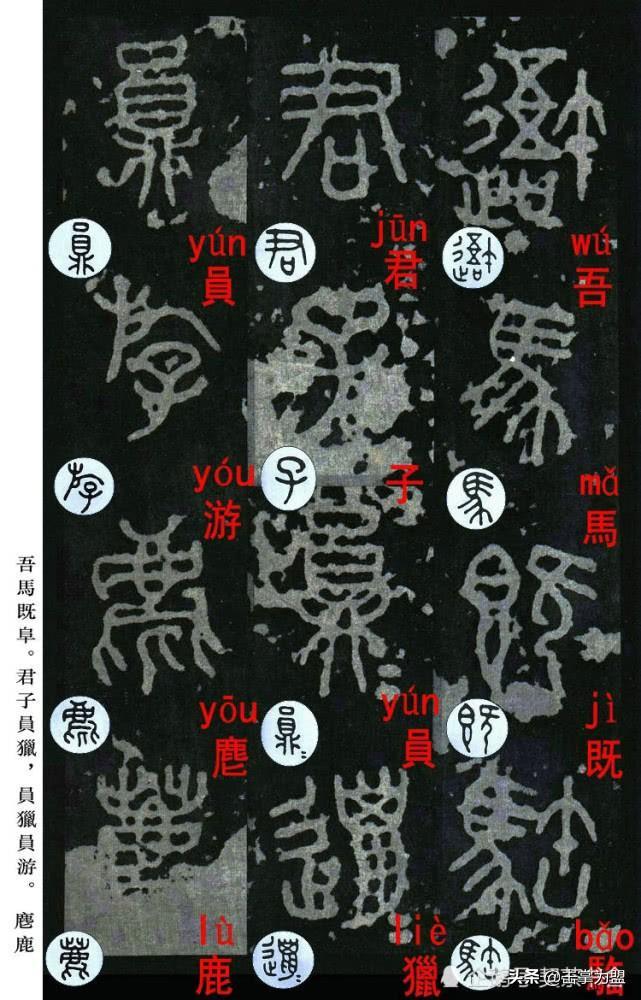 wú
吾
mǎ
馬
jì
既
bǎo
jūn
君
子
yún
員
liè
獵
yún
員
yóu
游
yōu
麀
lù
鹿
吾馬既阜。君子員獵，員獵員游。 麀鹿
头条